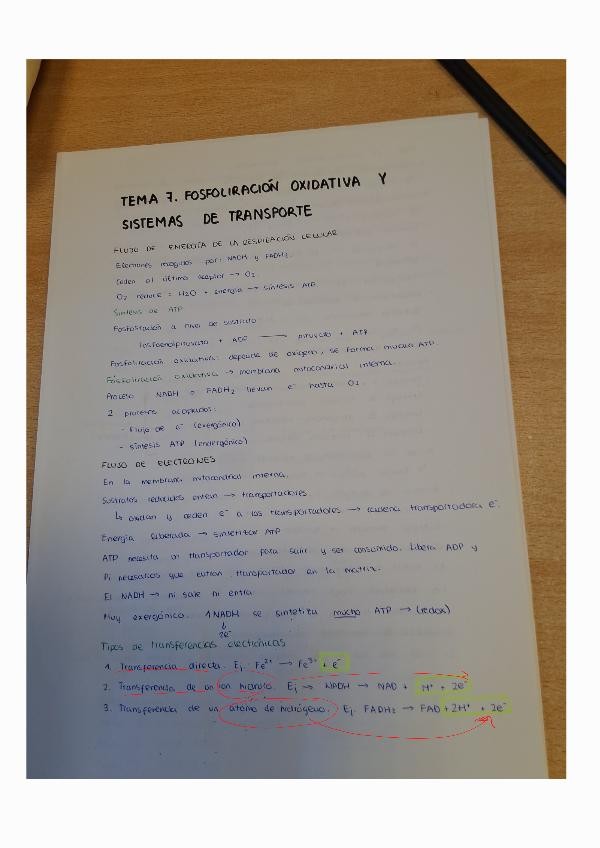 TEMA 7. FOSFOLIRACIÓN OXIDATIVA Y
SISTEMAS DE TRANSPORTE
FLUJO DE ENERGÍA DE LA RESPIRACIÓN CELULAR
Electrones recogidos por: NADH y FADH₂.
Ceden al último aceptor → O₂.
O₂ reduce = H₂O + energía → síntesis ATP.
Síntesis de ATP
Fosfoliración a nivel de sustrato:
fosfoenolpiruvato + ADP → piruvato + ATP
Fosfoliración oxidativa: depende de oxígeno, se forma mucho ATP.
Fosfoliración oxidativa → membrana mitocondrial interna.
Proceso NADH o FADH₂ llevan e⁻ hasta O₂.
2 procesos acoplados:
- Flujo de e⁻ (exergónico)
- síntesis ATP (endergónico)
FLUJO DE ELECTRONES
En la membrana mitocondrial interna.
Sustratos reducidos entran → transportadores
↳ oxidan y ceden e⁻ a los transportadores → cadena transportadora e⁻.
Energía liberada → sintetizar ATP
ATP necesita un transportador para salir y ser consumido. Libera ADP y
Pi necesarios que entran transportador en la matriz.
El NADH → ni sale ni entra.
Muy exergónico. 1 NADH se sintetiza mucho ATP → (redox)
↓
2e⁻
Tipos de transferencias electrónicas
1. Transferencia directa. Ej. Fe²⁺ → Fe³⁺ + e⁻
2. Transferencia de un ion hidruro. Ej → NADH → NAD + H⁺ + 2e⁻
3. Transferencia de un átomo de hidrógeno. Ej. FADH₂ → FAD + 2H⁺ + 2e⁻